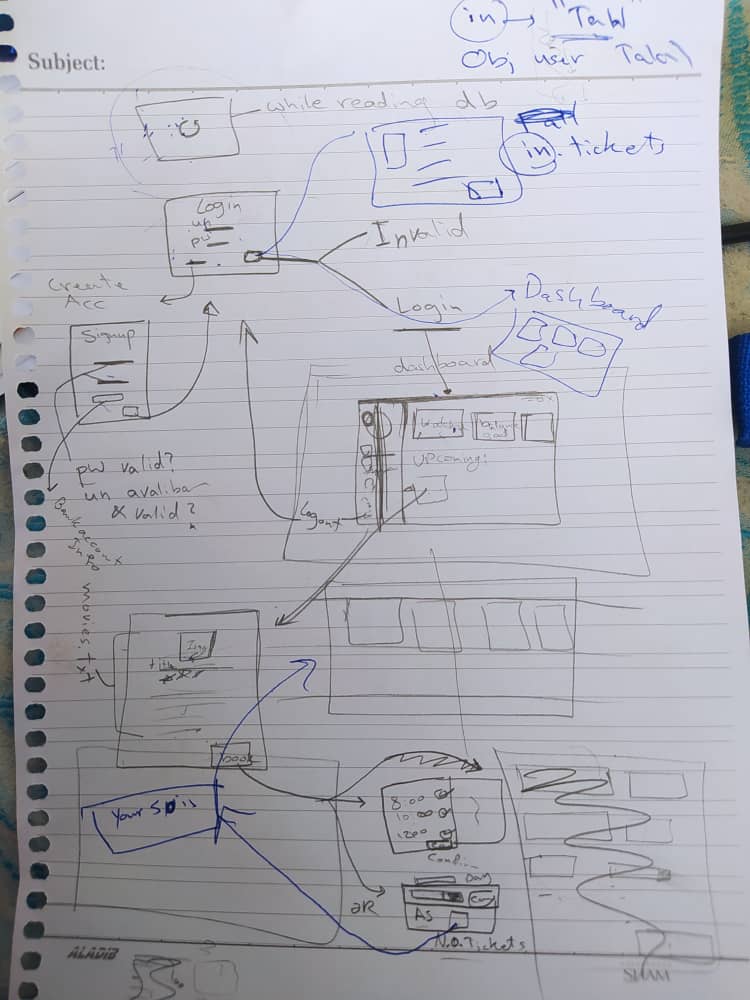 in → "Tabl"
Subject:
Obj user Tabl)
while reading db
in. tickets
Login
un
pw
Invalid
Create
Acc
Login
Dashboard
Signup
dashboard
UPcoming:
pw valid?
un avalibar
& valid?
Logout
Bank account
Info
movies.txt
Img
book
Your S is
8:00
10:00
12:00
Confir
Day
OR
AS
N.O.Tickets
ALADIB
SHAM